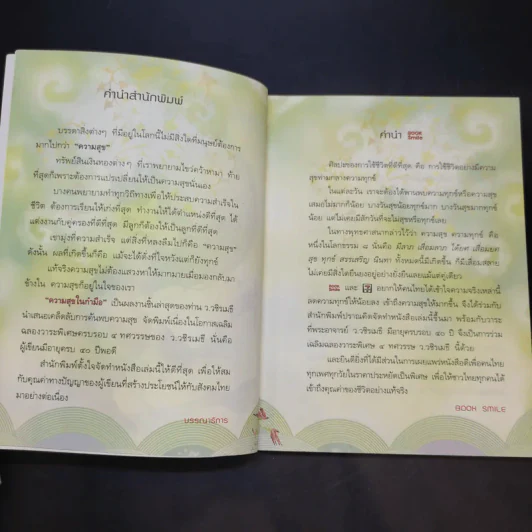 คำนำสำนักพิมพ์
บรรดาสิ่งต่างๆ ที่มีอยู่ในโลกนี้ไม่มีสิ่งใดที่มนุษย์ต้องการ
มากไปกว่า "ความสุข"
ทรัพย์สินเงินทองต่างๆ ที่เราพยายามไขว่คว้าหามา ท้าย
ที่สุดก็เพราะต้องการแปรเปลี่ยนให้เป็นความสุขนั่นเอง
บางคนพยายามทำทุกวิถีทางเพื่อให้ประสบความสำเร็จใน
ชีวิต ต้องการเรียนให้เก่งที่สุด ทำงานให้ได้ตำแหน่งดีที่สุด ได้
แต่งงานกับคู่ครองที่ดีที่สุด มีลูกก็ต้องให้เป็นลูกที่ดีที่สุด
เรามุ่งที่ความสำเร็จ แต่สิ่งที่หลงลืมไปก็คือ "ความสุข"
ดังนั้น ผลที่เกิดขึ้นก็คือ แม้จะได้ดังที่ใจหวังแต่ก็ยังทุกข์
แท้จริงความสุขไม่ต้องแสวงหาให้มากมายเมื่อมองกลับมา
ข้างใน ความสุขก็อยู่ในใจของเรา
"ความสุขในกำมือ" เป็นผลงานชิ้นล่าสุดของท่าน ว.วชิรเมธี
นำเสนอเคล็ดลับการค้นพบความสุข จัดพิมพ์เนื่องในโอกาสเฉลิม
ฉลองวาระพิเศษครบรอบ ๔ ทศวรรษของ ว.วชิรเมธี นั่นคือ
ผู้เขียนมีอายุครบ ๔๐ ปีพอดี
สำนักพิมพ์ตั้งใจจัดทำหนังสือเล่มนี้ให้ดีที่สุด เพื่อให้สม
กับคุณค่าทางปัญญาของผู้เขียนที่สร้างประโยชน์ให้กับสังคมไทย
มาอย่างต่อเนื่อง
บรรณาธิการ
คำนำ BOOK Smile
ศิลปะของการใช้ชีวิตที่ดีที่สุด คือ การใช้ชีวิตอย่างมีความ
สุขท่ามกลางความทุกข์
ในแต่ละวัน เราจะต้องได้พานพบความทุกข์หรือความสุข
เสมอไม่มากก็น้อย บางวันสุขน้อยทุกข์มาก บางวันสุขมากทุกข์
น้อย แต่ไม่เคยมีสักวันที่จะไม่สุขหรือทุกข์เลย
ในทางพุทธศาสนากล่าวไว้ว่า ความสุข ความทุกข์ คือ
หนึ่งในโลกธรรม ๘ นั่นคือ มีลาภ เสื่อมลาภ ได้ยศ เสื่อมยศ
สุข ทุกข์ สรรเสริญ นินทา ทั้งหมดนี้มีเกิดขึ้น ก็มีเสื่อมสลาย
ไม่เคยมีสิ่งใดยืนยงอยู่อย่างยั่งยืนเลยแม้แต่คู่เดียว
และ อยากให้คนไทยได้เข้าใจความจริงเหล่านี้
ลดความทุกข์ให้น้อยลง เข้าถึงความสุขให้มากขึ้น จึงได้ร่วมกับ
สำนักพิมพ์ปราณคิดจัดทำหนังสือเล่มนี้ขึ้นมา พร้อมกับวาระ
ที่พระอาจารย์ ว.วชิรเมธี มีอายุครบ ๔๐ ปี จึงเป็นการร่วม
เฉลิมฉลองวาระพิเศษ ๔ ทศวรรษ ว.วชิรเมธี นี้ด้วย
และยินดียิ่งที่ได้มีส่วนในการเผยแพร่หนังสือดีเพื่อคนไทย
ทุกเพศทุกวัยในราคาประหยัดเป็นพิเศษ เพื่อให้ชาวไทยทุกคนได้
เข้าถึงคุณค่าของชีวิตอย่างแท้จริง
BOOK SMILE